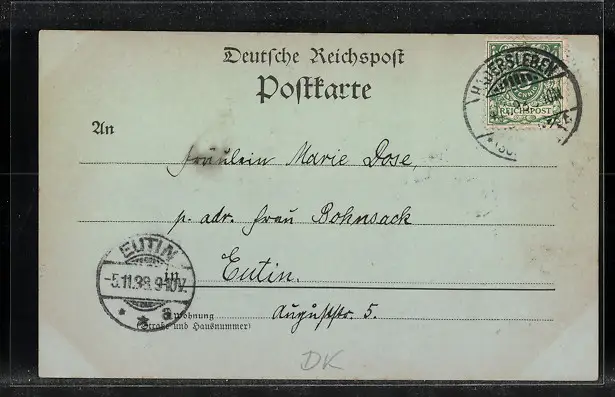 Deutsche Reichspost
Postkarte
HADERSLEBEN
REICHSPOST
An
Fräulein Marie Dose,
p. adr. Frau Bohnsack
EUTIN
-5.11.98.9-10V.
* * a
in
Eutin.
Auguststr. 5.
Wohnung
(Straße und Hausnummer)
DK